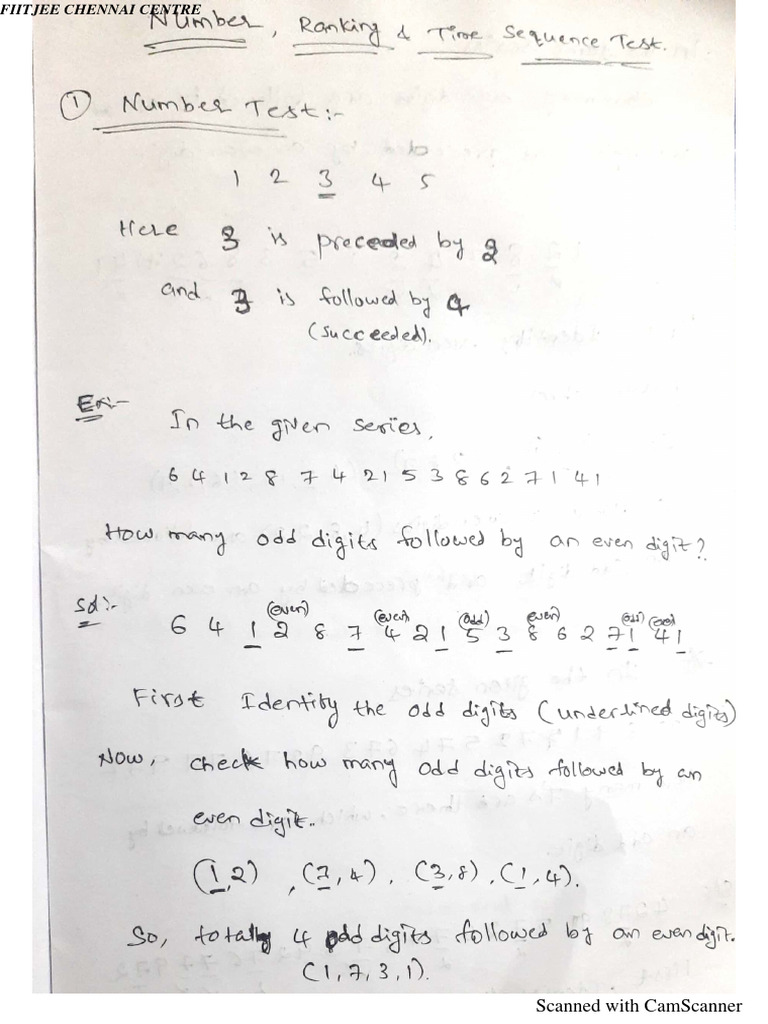 FIITJEE CHENNAI CENTRE
Number, Ranking & Time Sequence Test.
① Number Test:-
1 2 3 4 5
Here 3 is preceded by 2
and 3 is followed by 4
(succeeded).
Ex:-
In the given series,
6 4 1 2 8 7 4 2 1 5 3 8 6 2 7 1 4 1
How many odd digits followed by an even digit?
(even) (even) (odd) (even) (odd)
Sol:- 6 4 1 2 8 7 4 2 1 5 3 8 6 2 7 1 4 1
First Identity the odd digits (underlined digits)
Now, check how many odd digits followed by an
even digit.
(1,2), (7,4), (3,8), (1,4).
So, totally 4 odd digits followed by an even digit.
(1,7,3,1).
Scanned with CamScanner